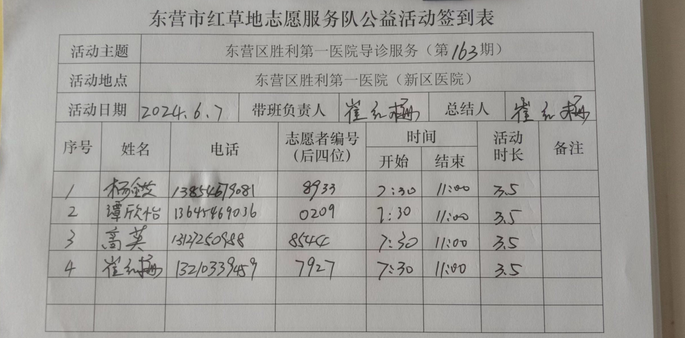 东营市红草地志愿服务队公益活动签到表
活动主题 东营区胜利第一医院导诊服务（第163期）
活动地点 东营区胜利第一医院（新区医院）
活动日期 2024.6.7 带班负责人 崔红梅 总结人 崔红梅
序号 姓名 电话 志愿者编号（后四位） 时间 开始 结束 活动时长 备注
1 8933 7:30 11:00 3.5
2 谭欣怡 13645469036 0209 7:30 11:00 3.5
3 高英 8544 7:30 11:00 3.5
4 崔红梅 13210339459 7927 7:30 11:00 3.5